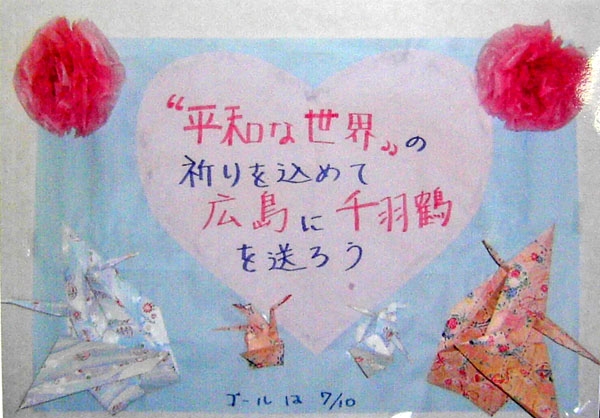 “平和な世界”の
祈りを込めて
広島に千羽鶴
を送ろう
ゴールは 7/10